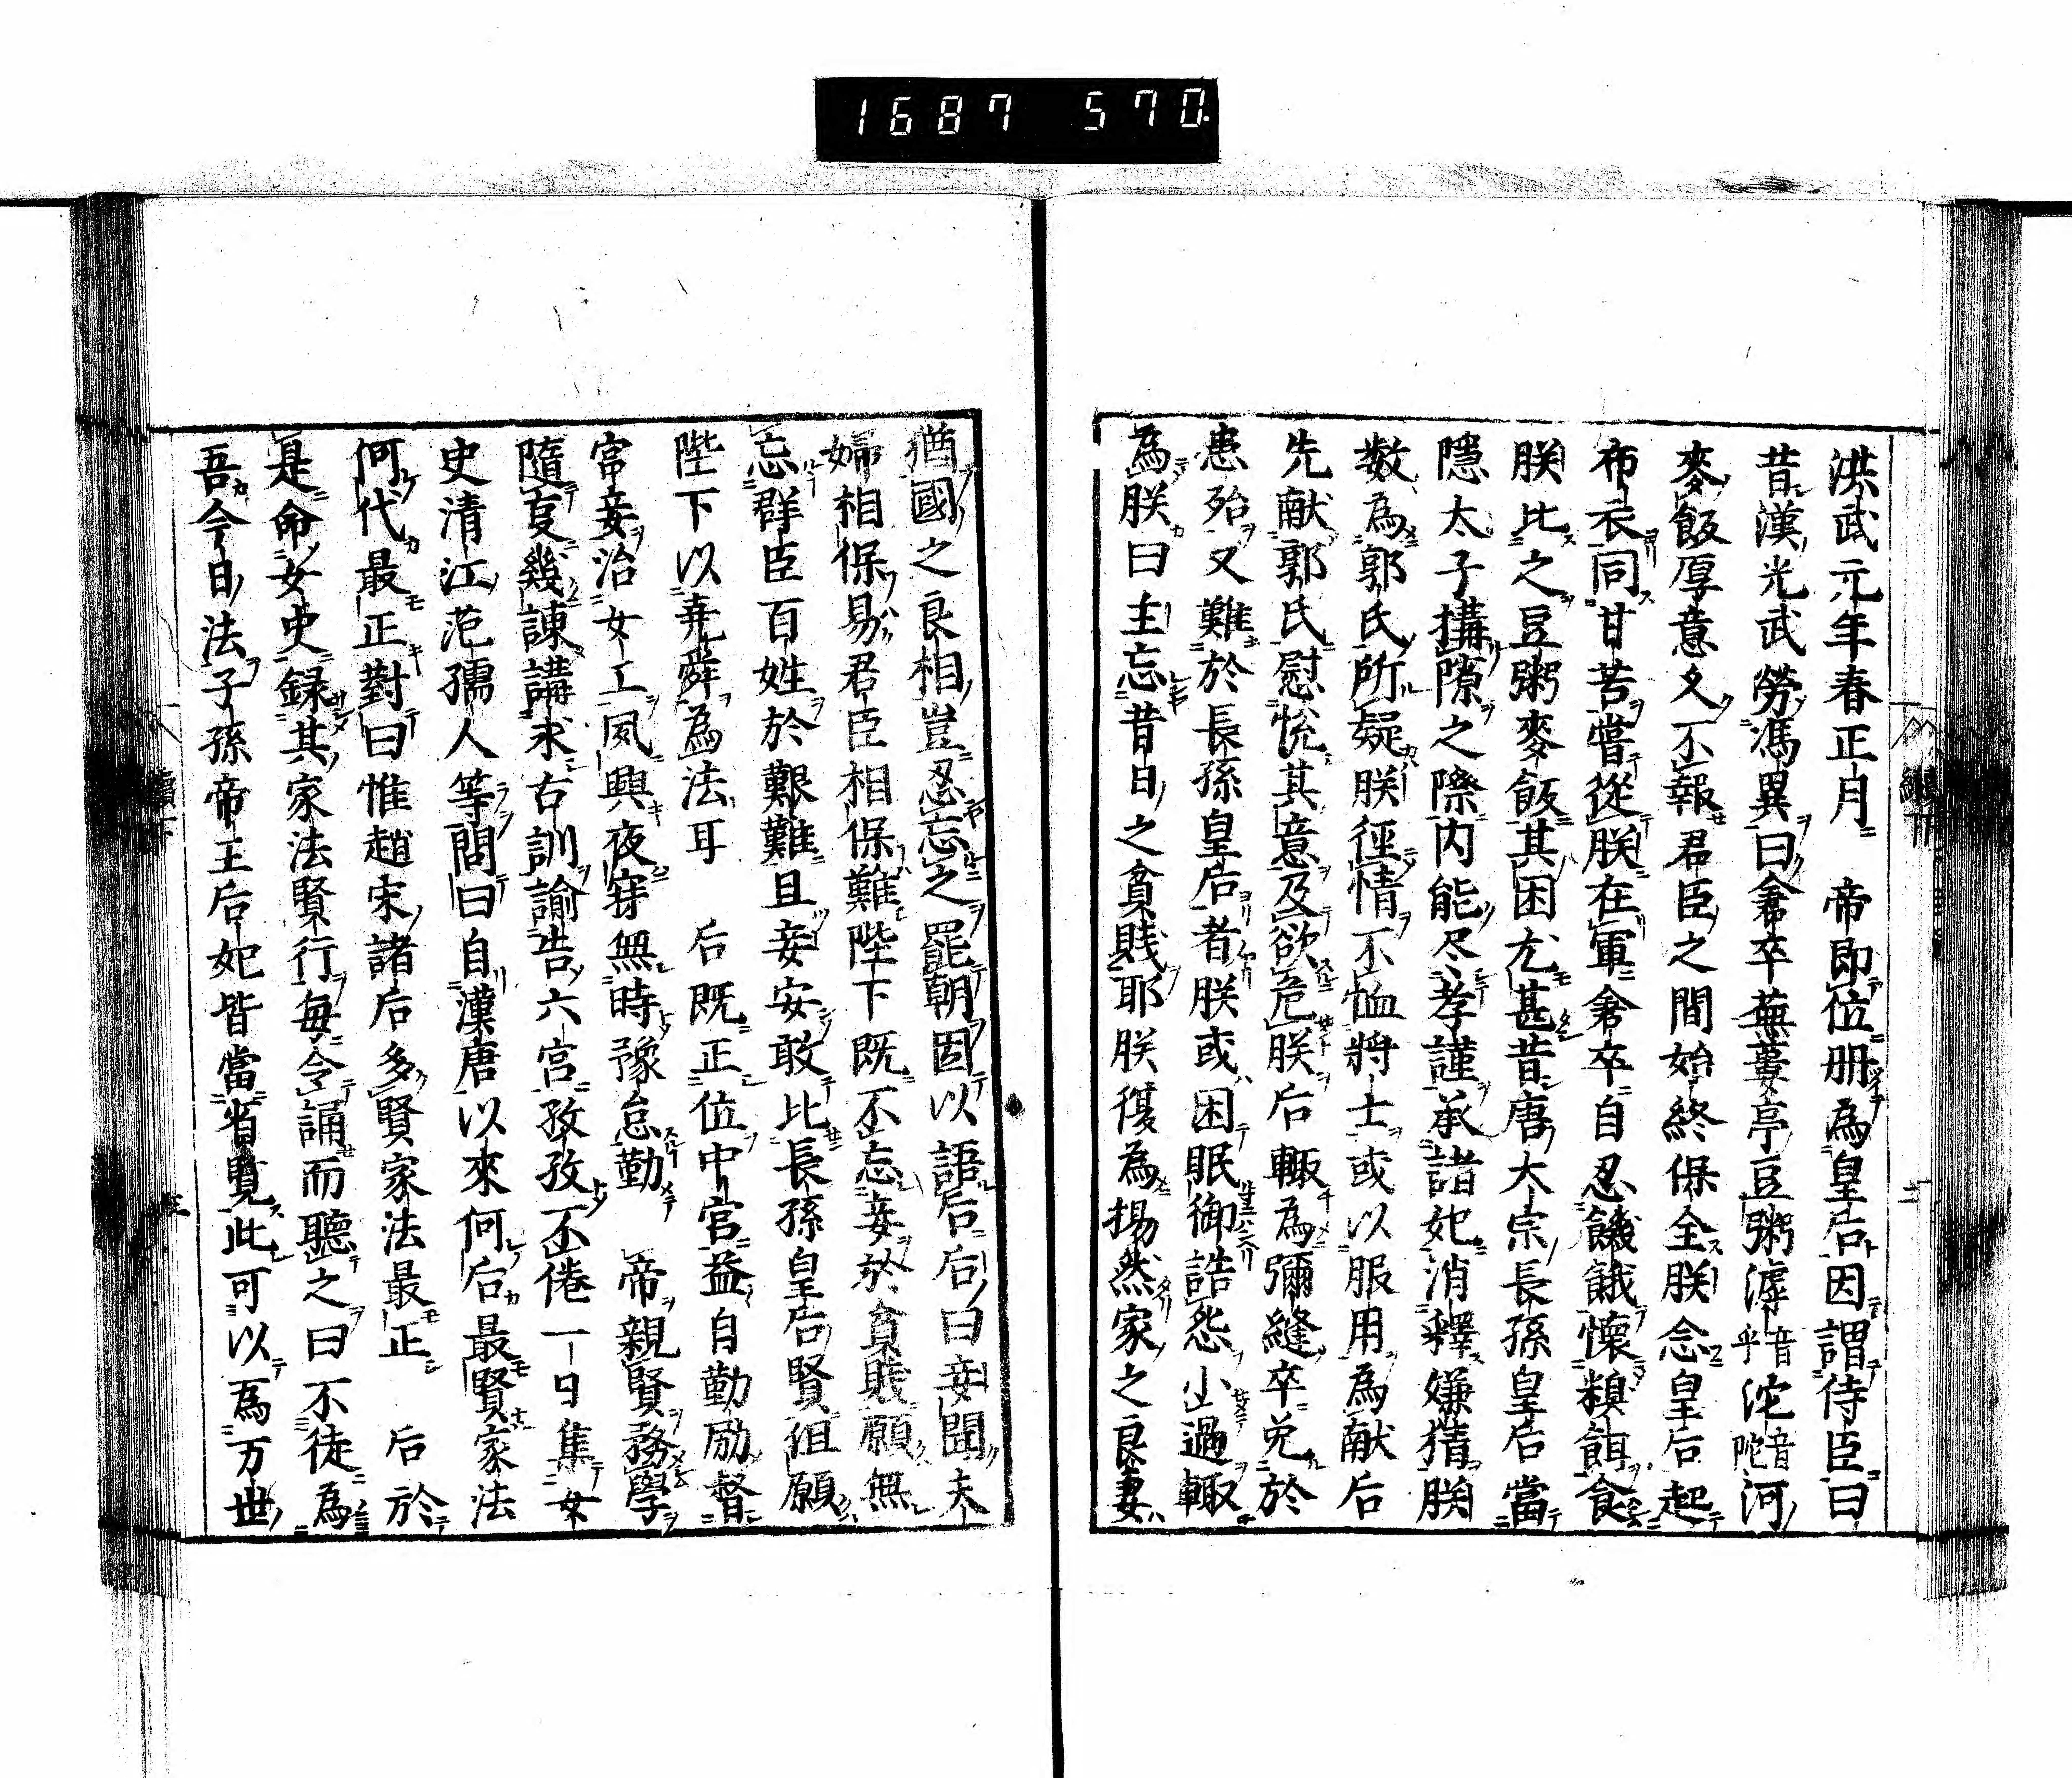 1687 570
洪武元年春正月　帝即位册為皇后因謂侍臣曰
昔漢光武勞馮異曰倉卒蕪蔞亭豆粥滹音乎沱音陀河
麥飯厚意久不報君臣之間始終保全朕念皇后起
布衣同甘苦嘗從朕在軍倉卒自忍饑餓懷糗餌食
朕比之豆粥麥飯其困尤甚昔唐大宗長孫皇后當
隱太子搆隙之際内能尽孝謹承諸妃消釋嫌猜朕
数為郭氏所疑朕徑情不恤將士或以服用為献后
先献郭氏慰悅其意及欲危朕后輙為彌縫卒免於
患殆又難於長孫皇后者朕或困眠御誥怨小過輙
為朕曰主忘昔日之貧賎耶朕復為惕然家之良妻
猶國之良相豈忍忘之罷朝因以語后后曰妾聞夫
婦相保易君臣相保難陛下既不忘妾於貧賎願無
忘群臣百姓於艱難且妾安敢比長孫皇后賢但願
陛下以尭舜為法耳　后既正位中宮益自勤励督
宮妾治女工夙興夜寐無時豫怠勤　帝親賢務學
隨㕝幾諌講求古訓諭告六宮孜孜不倦一日集女
史清江范孺人等問曰自漢唐以來何后最賢家法
何代最正對曰惟趙宋諸后多賢家法最正　后於
是命女史録其家法賢行每令誦而聽之曰不徒為
吾今日法子孫帝王后妃皆當省覧此可以為万世